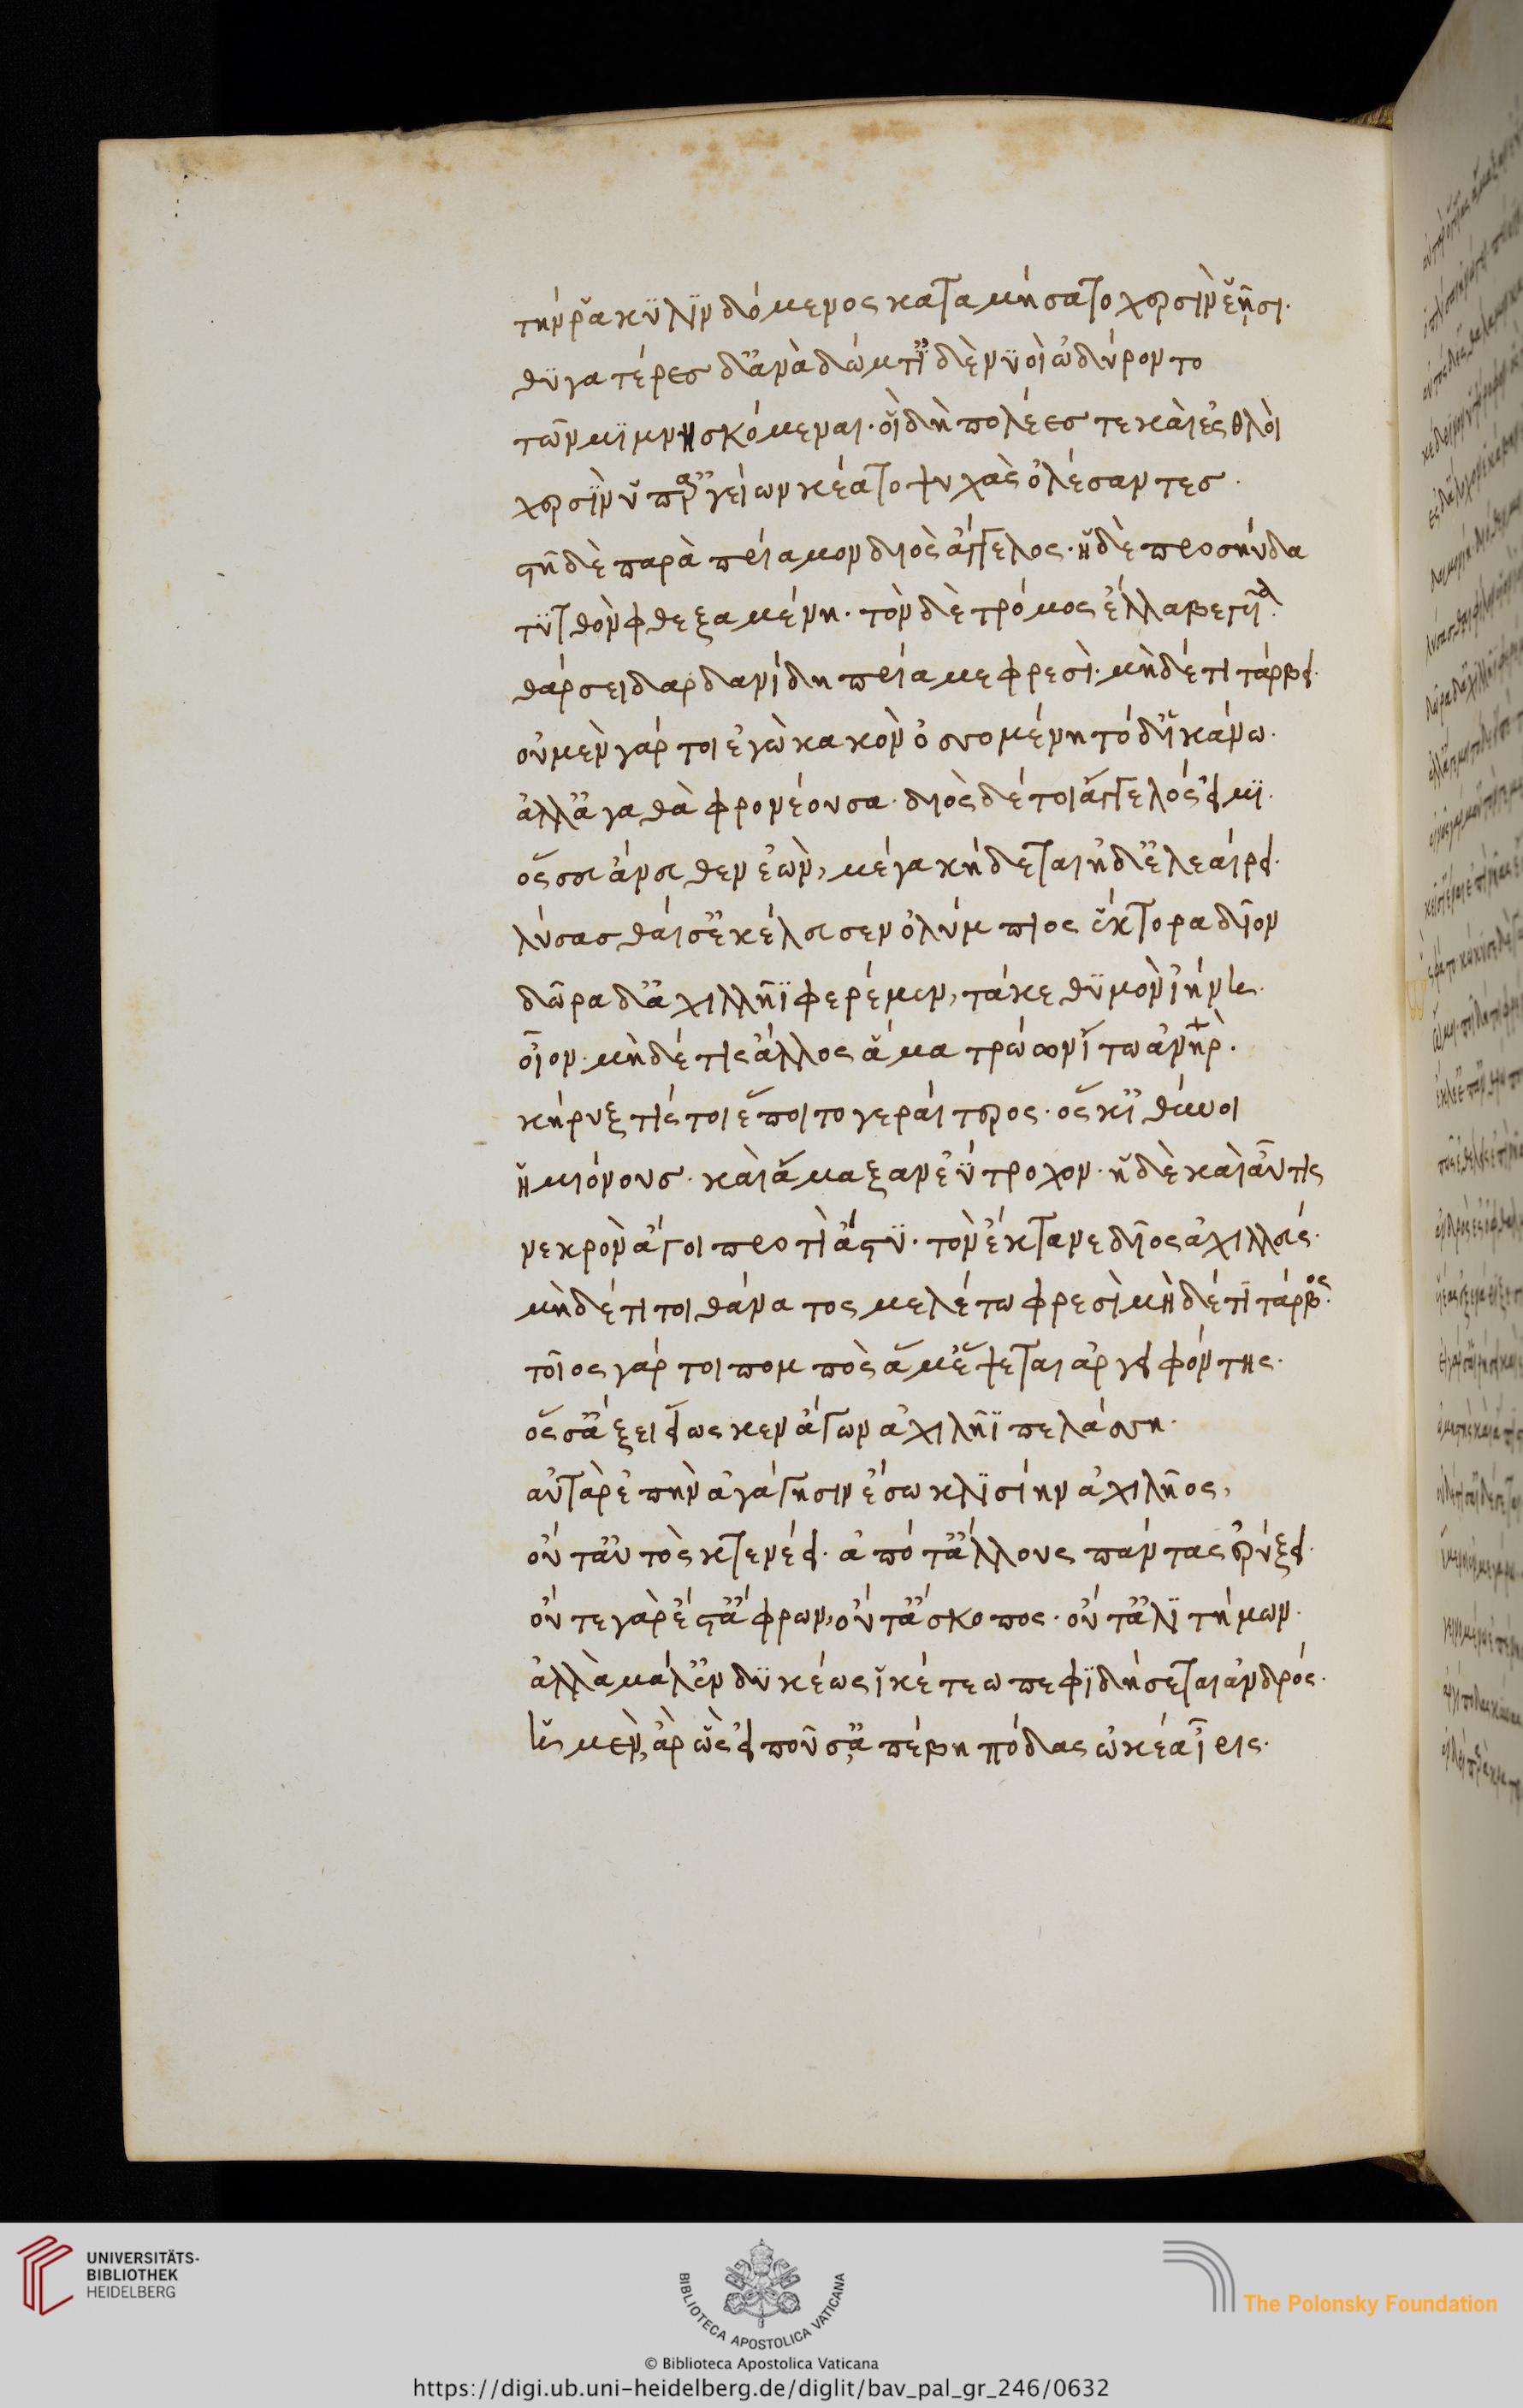 τήν ῥα κυλινδόμενος καταμήσατο χερσὶν ἑῇσι.
θυγατέρες δ' ἀνὰ δώματ' ἰδὲ νυοὶ ὠδύροντο
τῶν μιμνησκόμεναι. οἳ δὴ πολέες τε καὶ ἐσθλοὶ
χερσὶν ὑπ' ἀργείων κέατο ψυχὰς ὀλέσαντες.
στῆ δὲ παρὰ πρίαμον διὸς ἄγγελος. ἠδὲ προσηύδα
τυτθὸν φθεγξαμένη. τὸν δὲ τρόμος ἔλλαβε γυῖα.
θάρσει δαρδανίδη πρίαμε φρεσὶ. μὴδέ τι τάρβει.
οὐ μὲν γάρ τοι ἐγὼ κακὸν ὀσσομένη τόδ' ἱκάνω.
ἀλλ' ἀγαθὰ φρονέουσα. διὸς δέ τοι ἄγγελός εἰμι.
ὅς σευ ἄνευθεν ἐὼν, μέγα κήδεται ἠδ' ἐλεαίρει.
λύσασθαί σ' ἐκέλευσεν ὀλύμπιος ἕκτορα δῖον
δῶρα δ' ἀχιλλῆϊ φερέμεν, τά κε θυμὸν ἰήνῃ.
οἶον. μὴδέ τις ἄλλος ἅμα τρώων ἴτω ἀνῆρ.
κήρυξ τίς τοι ἕποιτο γεραίτερος. ὅς κ' ἰθύνοι
ἡμιόνους. καὶ ἅμαξαν ἐΰτροχον. ἠδὲ καὶ αὖτις
νεκρὸν ἄγοι προτὶ ἄστυ. τὸν ἔκτανε δῖος ἀχιλλεύς.
μὴδέ τι τοι θάνατος μελέτω φρεσὶ μὴδέ τι τάρβος.
τοῖος γάρ τοι πομπὸς ἅμ' ἕψεται ἀργειφόντης.
ὅς σ' ἄξει εἵως κεν ἄγων ἀχιλῆϊ πελάσση.
αὐτὰρ ἐπὴν ἀγάγησιν ἔσω κλισίην ἀχιλῆος,
οὔτ' αὐτὸς κτενέει. ἀπό τ' ἄλλους πάντας ἐρύξει.
οὔτε γὰρ ἔστ' ἄφρων, οὔτ' ἄσκοπος. οὔτ' ἀλιτήμων.
ἀλλὰ μάλ' ἐνδυκέως ἱκέτεω πεφιδήσεται ἀνδρός.
ἡ μὲν, ἀρ' ὣς εἰποῦσ', ἀπέβη πόδας ὠκέα ἶρις.
UNIVERSITÄTS-
BIBLIOTHEK
HEIDELBERG
BIBLIOTECA APOSTOLICA VATICANA
The Polonsky Foundation
© Biblioteca Apostolica Vaticana
https://digi.ub.uni-heidelberg.de/diglit/bav_pal_gr_246/0632